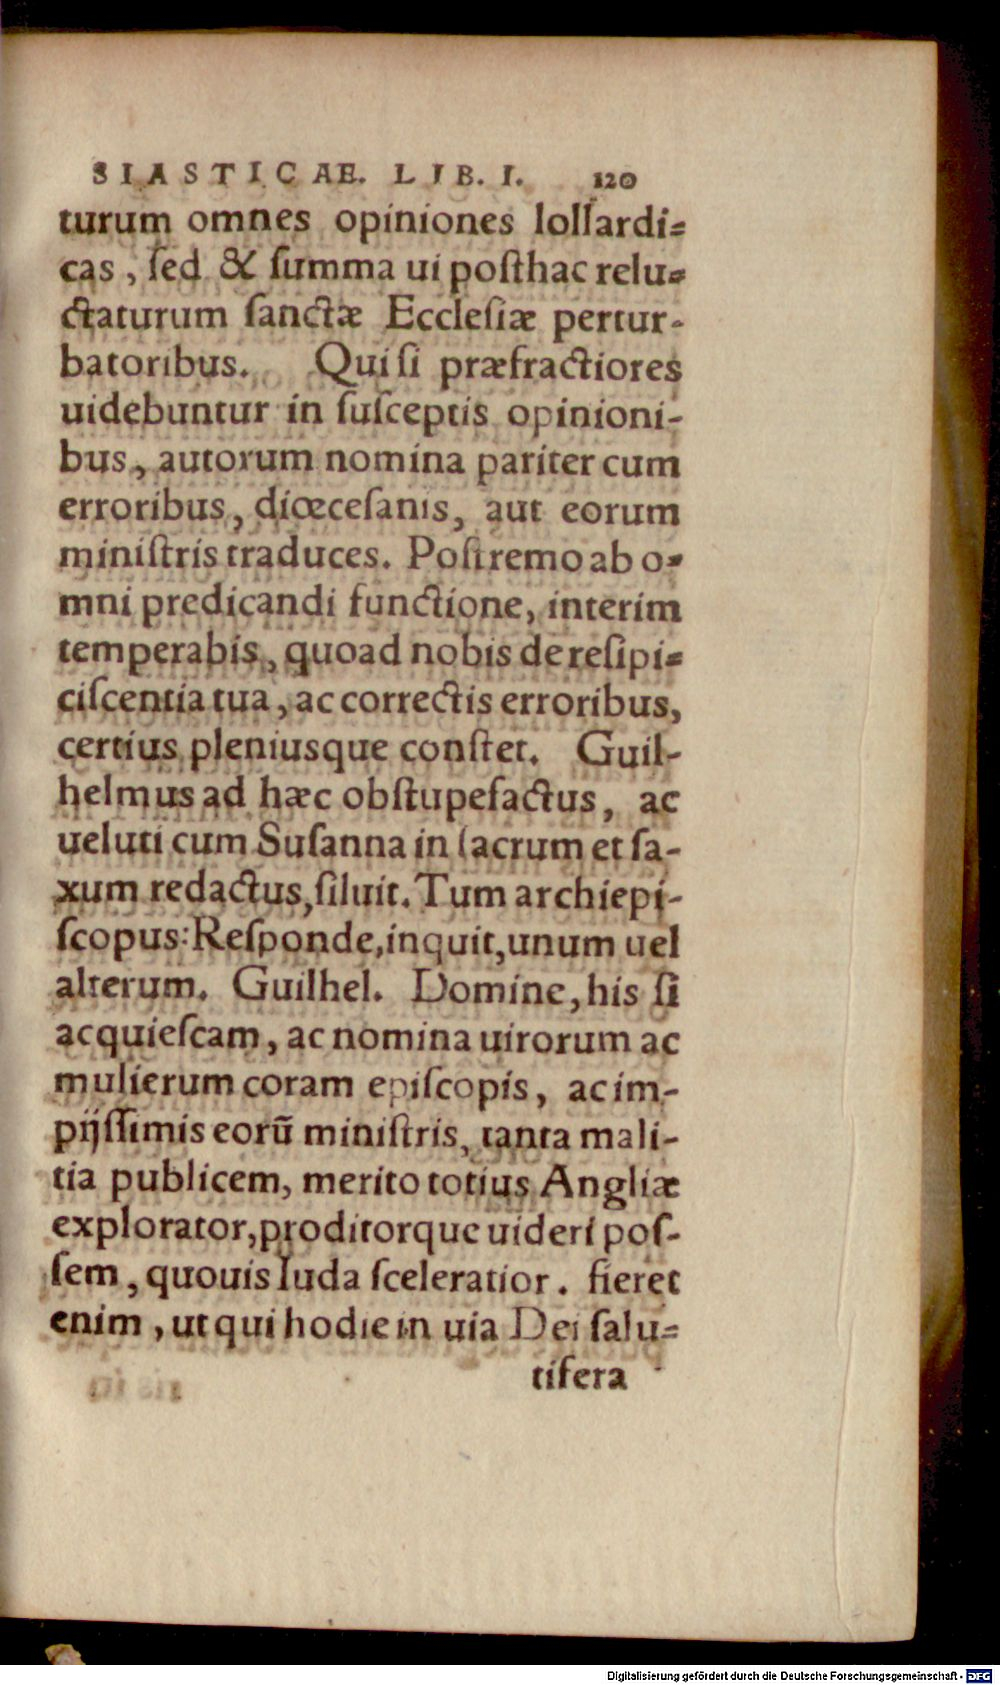 SIASTICAE. LIB. I. 120
turum omnes opiniones lollardi⸗
cas, ſed & ſumma ui poſthac relu⸗
ctaturum ſanctæ Eccleſiæ pertur-
batoribus. Qui ſi præfractiores
uidebuntur in ſuſceptis opinioni-
bus, autorum nomina pariter cum
erroribus, diœceſanis, aut eorum
miniſtris traduces. Poſtremo ab o⸗
mni predicandi functione, interim
temperabis, quoad nobis de reſipi⸗
ciſcentia tua, ac correctis erroribus,
certius pleniusque conſtet. Guil-
helmus ad hæc obſtupefactus, ac
ueluti cum Suſanna in ſacrum et ſa-
xum redactus, ſiluit. Tum archiepi-
ſcopus: Reſponde, inquit, unum uel
alterum. Guilhel. Domine, his ſi
acquieſcam, ac nomina uirorum ac
mulierum coram epiſcopis, ac im-
pijſſimis eorũ miniſtris, tanta mali-
tia publicem, merito totius Angliæ
explorator, proditorque uideri poſ-
ſem, quouis Iuda ſceleratior. fieret
enim, ut qui hodie in uia Dei ſalu⸗
tifera
Digitalisierung gefördert durch die Deutsche Forschungsgemeinschaft - DFG